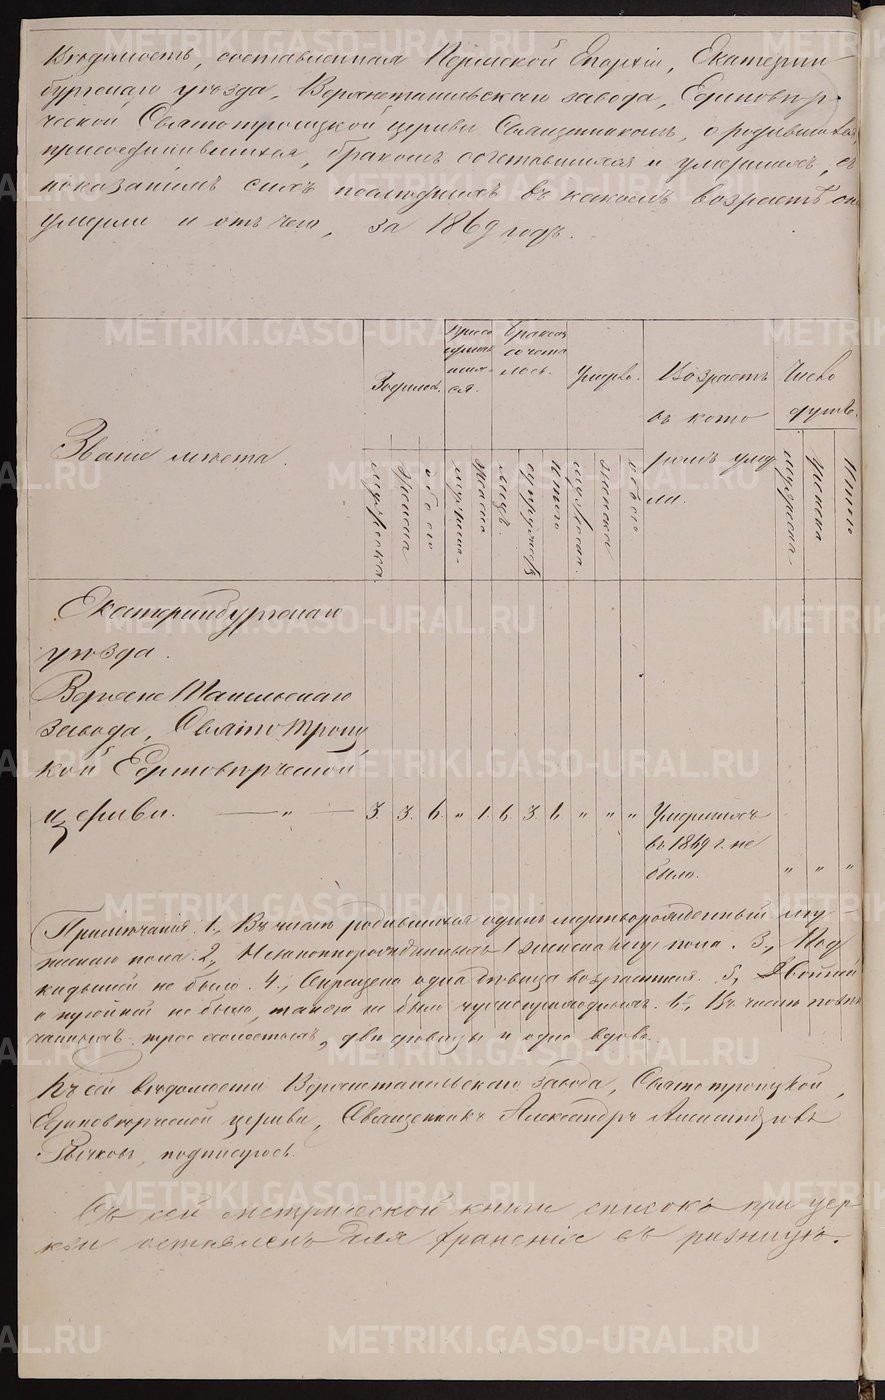 Вѣдомость, составленная Пермской Епархіи, Екатерин-
бургскаго уѣзда, Верхнетагильскаго завода, Единовѣр-
ческой Святотроицкой церкви Священникомъ, о родившихся,
присоединившихся, бракомъ сочетавшихся и умершихъ, съ
показаніемъ сихъ последнихъ въ какомъ возрастѣ они
умерли и отъ чего, за 1869 годъ.
Званіе мѣста.
Родилось.
Присо
едине
ния-
ся.
Бракомъ
сочета
лось.
Умерло.
Возрастъ
въ кото
ромъ умер
ли.
Число
душъ.
мужеска.
женска
обоего
мужеска.
женска
лицъ.
супружествъ
Итого
мужеска.
женска
обоего
мужеска
женска
Итого
Екатеринбургскаго
уѣзда.
Верхне Тагильскаго
завода, Святотроиц
кой Единовѣрческой
церкви. — " — 3. 3. 6. " 1. 6. 3. 6. " " " Умершихъ
въ 1869 г. не
было. " " "
Примѣчанія 1., Въ числѣ родившихся одинъ мертворожденный му-
жескаго пола. 2., Незаконнорожденныхъ 1 женска пола. 3., Под
кидышей не было. 4., Окрещена одна дѣвица возрастная. 5., Двойней
и тройней не было, также не было чудноприродныхъ. 6., Въ числѣ повѣн
чанныхъ трое холостыхъ, двѣ дѣвицы и одна вдова.
Къ сей вѣдомости Верхнетагильскаго завода, Святотроицкой,
Единовѣрческой церкви, Священникъ Александръ Александровъ
Бычковъ, подписуюсь.
Съ сей метрической книги списокъ при цер-
кви оставленъ для храненія въ ризницу.
METRIKI.GASO-URAL.RU